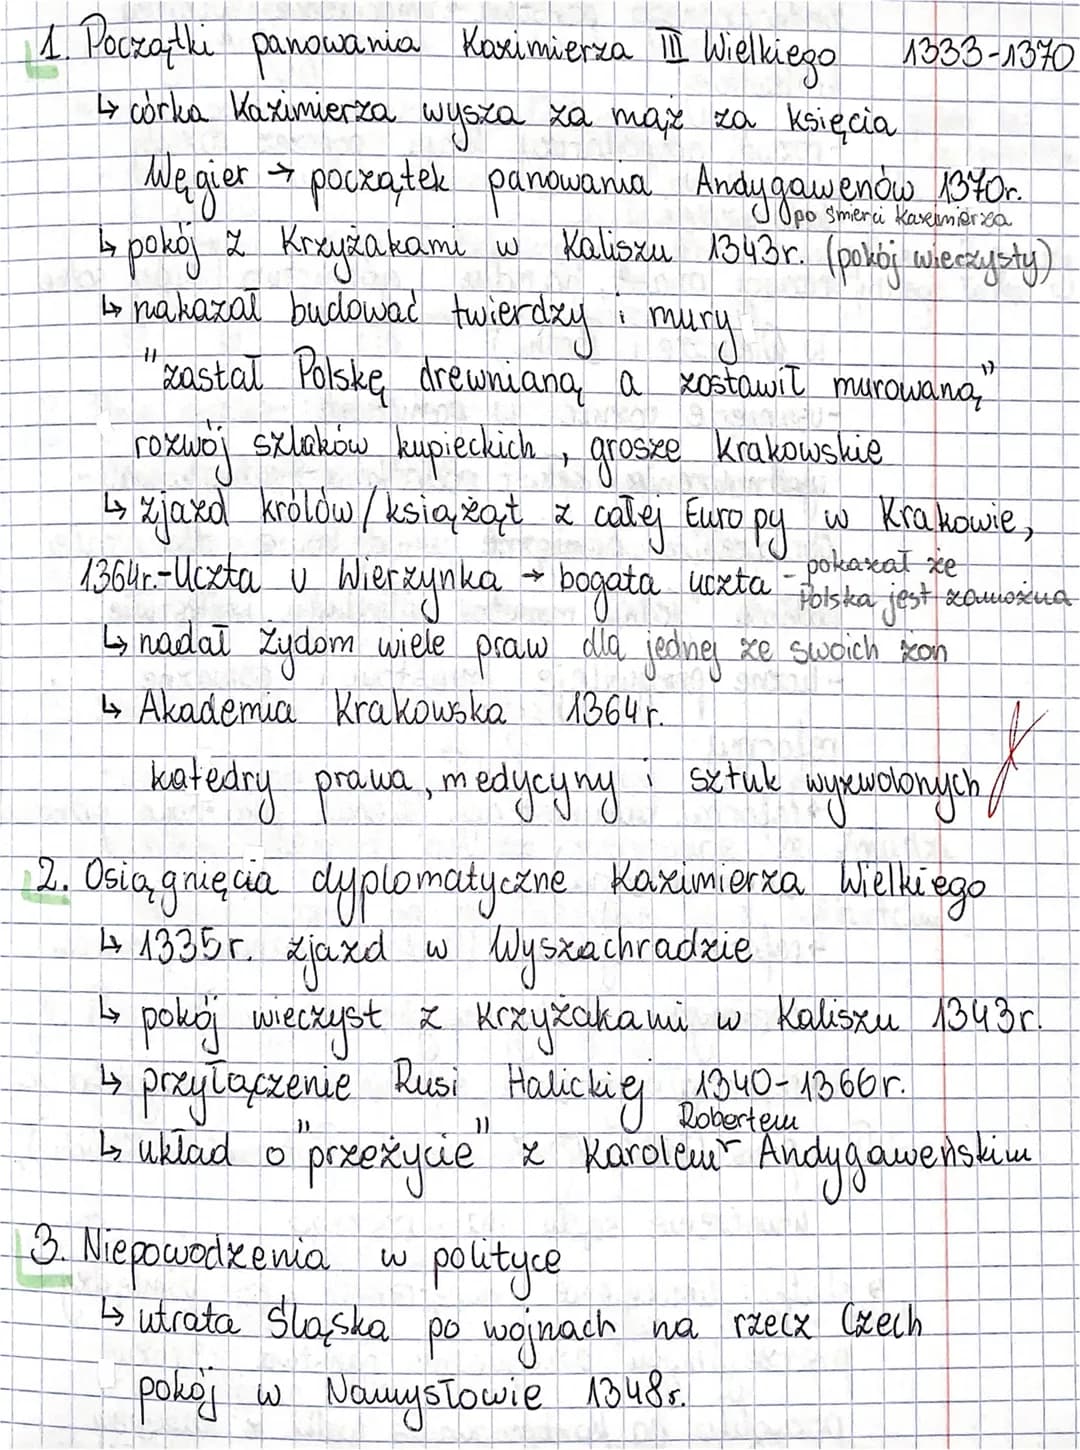 1. Początki panowania Kazimierza III Wielkiego 1333-1370
↳ córka Kazimierza wysza za mąż za księcia
Węgier → początek panowania Andygawenów 1370r.
po śmierci Kazimierza
↳ pokój z Krzyżakami w Kaliszu 1343r. (pokój wieczysty)
↳ nakazał budować twierdzy i mury
"zastał Polskę drewnianą a zostawił murowaną"
rozwój szlaków kupieckich, grosze Krakowskie
↳ zjazd królów/książąt z całej Europy w Krakowie,
1364r.-Uczta u Wierzynka → bogata uczta - pokazał że
Polska jest zamożna
↳ nadał Żydom wiele praw dla jednej ze swoich żon
↳ Akademia Krakowska 1364r.
katedry prawa, medycyny i sztuk wyzwolonych
2. Osiągnięcia dyplomatyczne Kazimierza Wielkiego
↳ 1335r. zjazd w Wyszachradzie
↳ pokój wieczyst z Krzyżakami w Kaliszu 1343r.
↳ przyłączenie Rusi Halickiej 1340-1366r.
Robertem
↳ układ o "przeżycie" z Karolem Andygaweńskim
3. Niepowodzenia w polityce
↳ utrata Śląska po wojnach na rzecz Czech
pokój w Namysłowie 1348r.